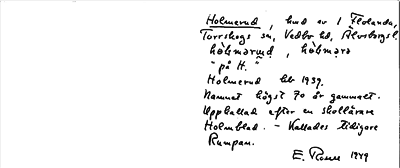 Holmerud, hmd av 1 Flolanda,
Torrskogs sn, Vedbo hd, Älvsborgs l.
hòlmarud, hòlmara
"på H."
Holmerud beb 1939.
Namnet högst 70 år gammalt.
Uppkallad efter en skollärare
Holmblad. – Kallades tidigare
Rumpan.
E. 1949